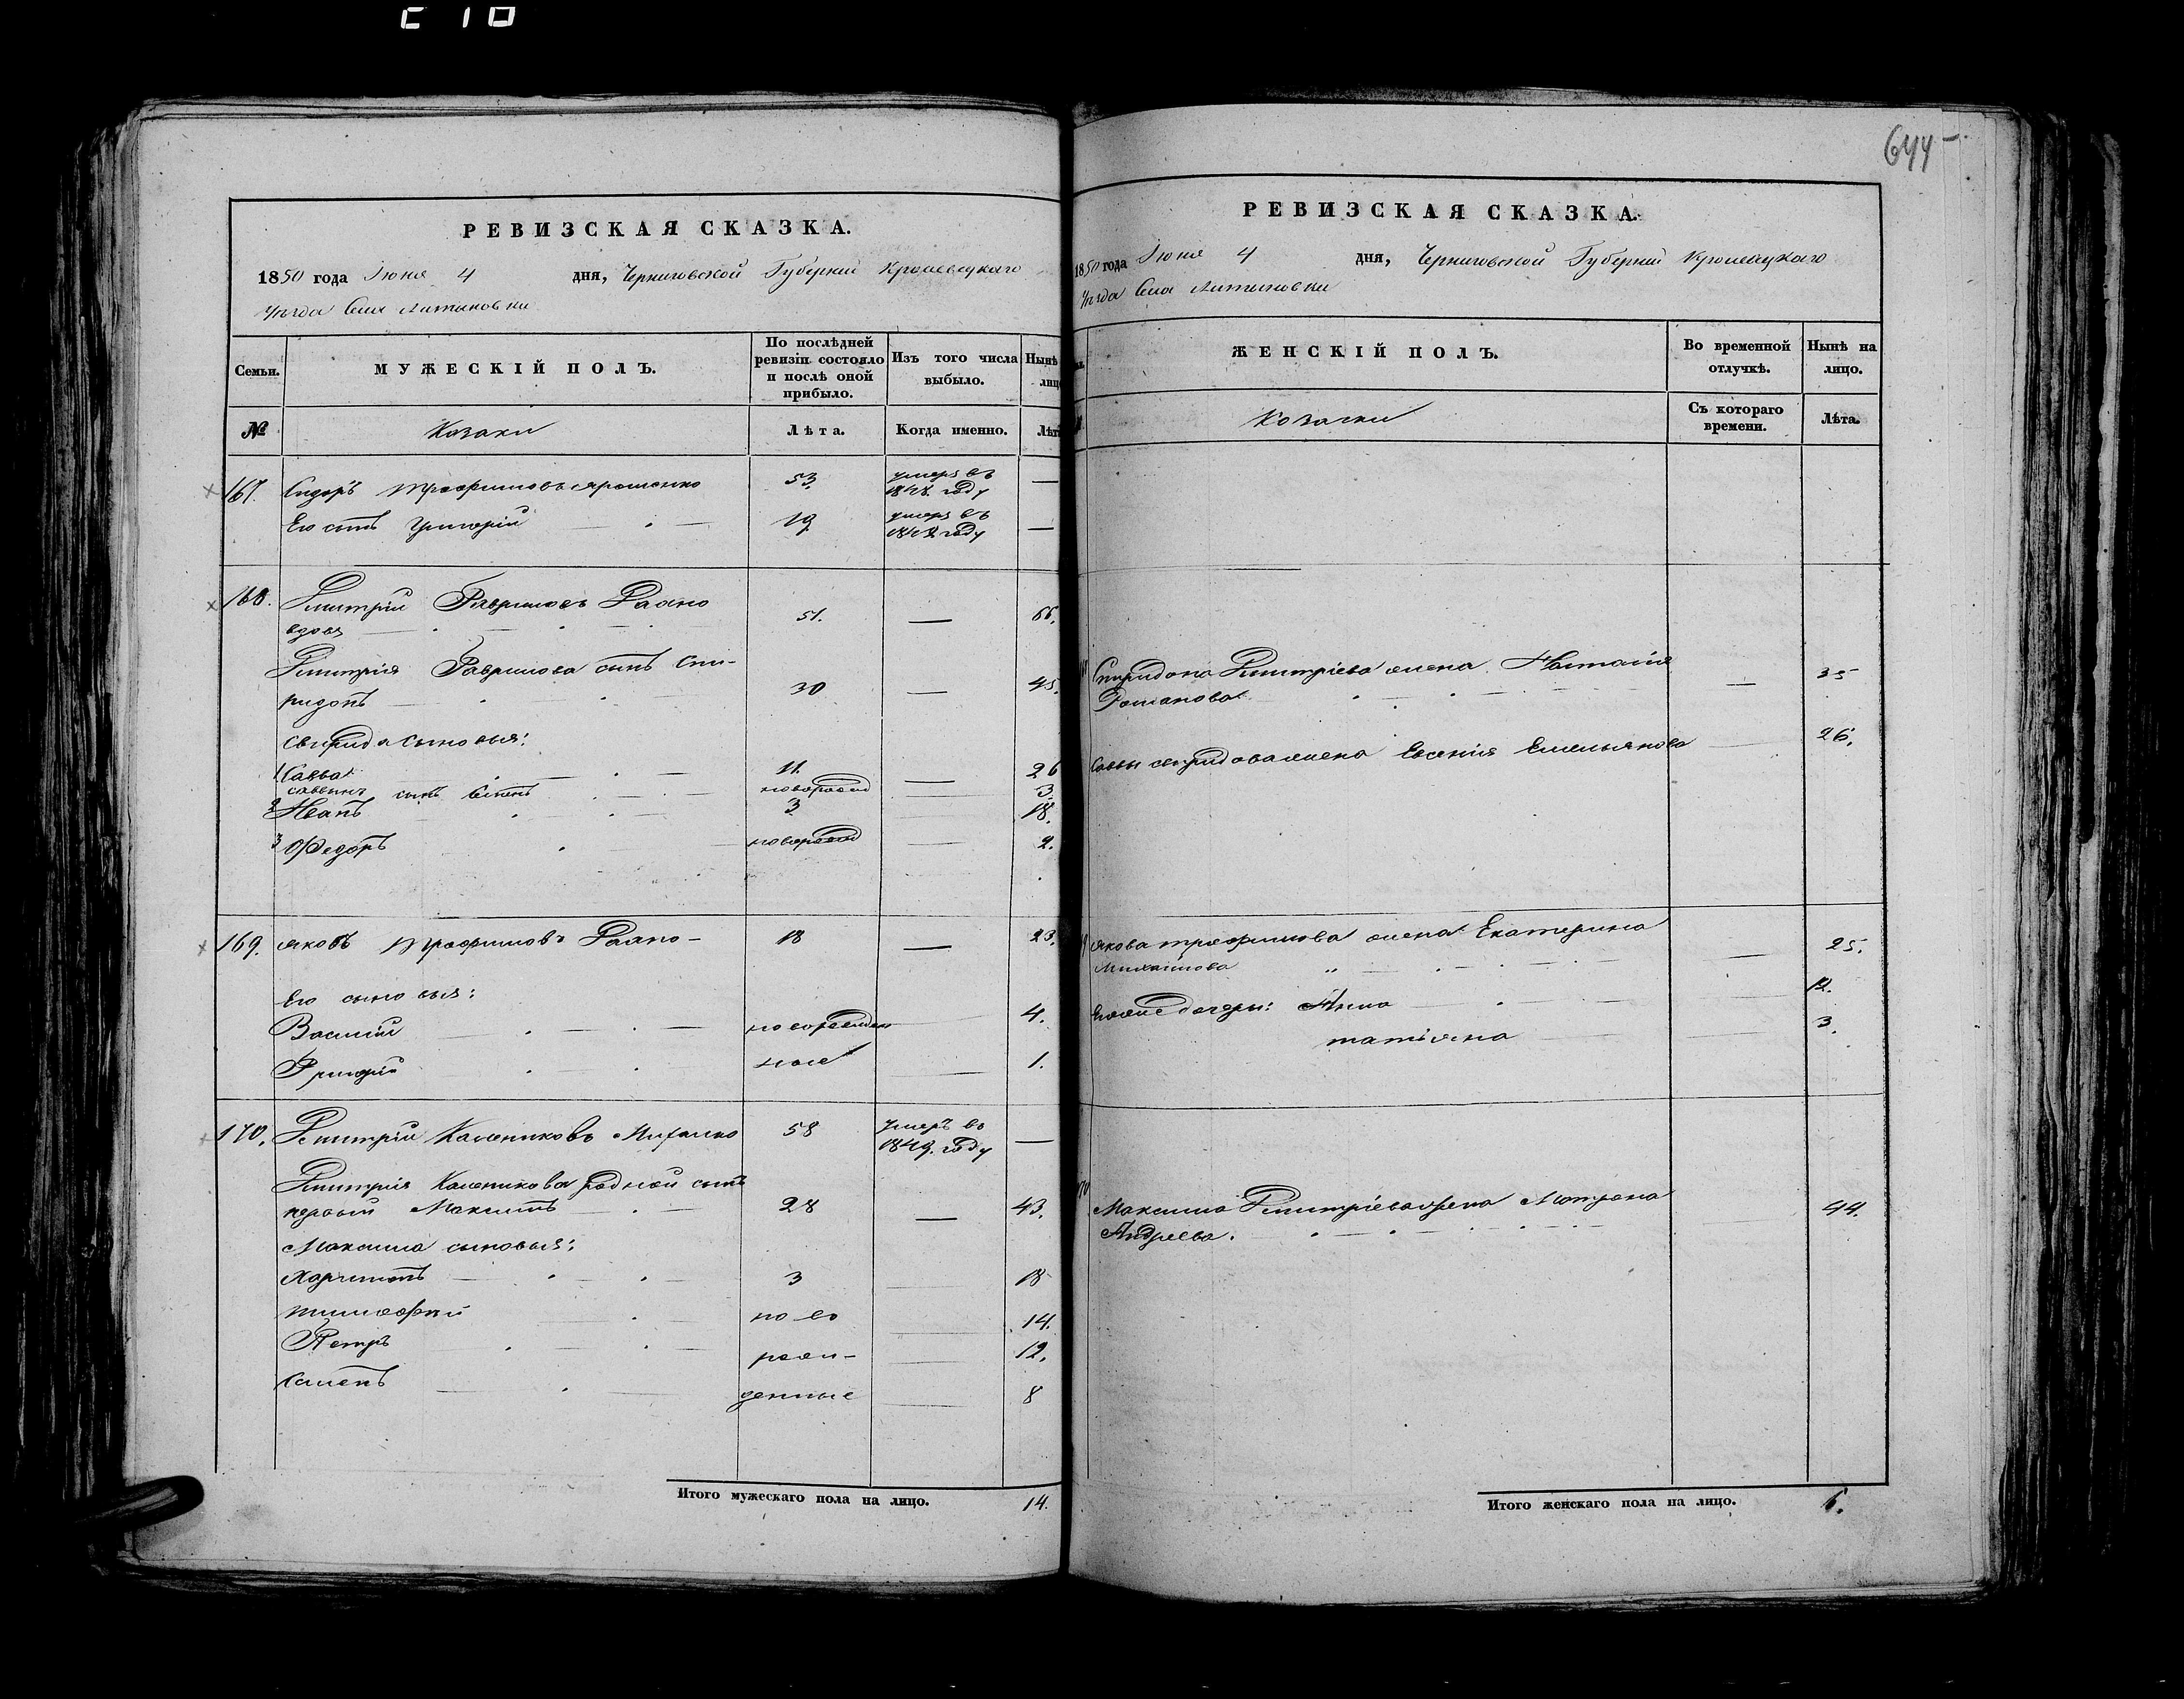 644
РЕВИЗСКАЯ СКАЗКА.
1850 года Іюня 4 дня, Черниговской Губерніи Кролевецкаго
уѣзда Села Литвиновки
Семьи.
МУЖЕСКІЙ ПОЛЪ.
По послѣдней ревизіи состояло и послѣ оной прибыло.
Изъ того числа выбыло.
Нынѣ
лицо
№
Козаки
Лѣта.
Когда именно.
Лѣта
167. Сидоръ Трофимовъ Ярошенко 53. умеръ въ 1848. году —
Его сынъ Григорій 19 умеръ въ 1848 году —
168. Дмитрій Гавриловъ 51. — 66.
вдовъ
Дмитрія Гаврилова сынъ Спи-
ридонъ 30 — 45.
Свирида сыновья:
1 Савва 11. — 26
Саввинъ сынъ новорожд 3
2 Иванъ 3 18.
3 Федоръ новорожд 2.
169. Яковъ Трофимовъ 18 — 23.
Его сыновья:
Василій новорожден 4.
Григорій ные 1.
170. Дмитрій Калениковъ 58 умеръ въ 1849. году —
Дмитрія Каленикова родной сынъ
первый Максимъ 28 — 43.
Максима сыновья:
Харитонъ 3 18
Тимофей ново 14.
Петръ рож- 12.
Семенъ денные 8
Итого мужескаго пола на лицо. 14.
РЕВИЗСКАЯ СКАЗКА.
1850 года Іюня 4 дня, Черниговской Губерніи Кролевецкаго
уѣзда Села Литвиновки
ЖЕНСКІЙ ПОЛЪ.
Во временной отлучкѣ.
Нынѣ на лицо.
Козачки
Съ котораго времени.
Лѣта.
Спиридона Дмитріева жена Наталія — 35
Романова
Саввы Свиридова жена Евгенія Емельянова 26.
Якова Трофимова жена Екатерина
Михайлова — 25.
Его же дочери: Анна 12.
Татіяна 3.
170 Максима Дмитріева жена Матрена 44.
Андреева.
Итого женскаго пола на лицо. 6.